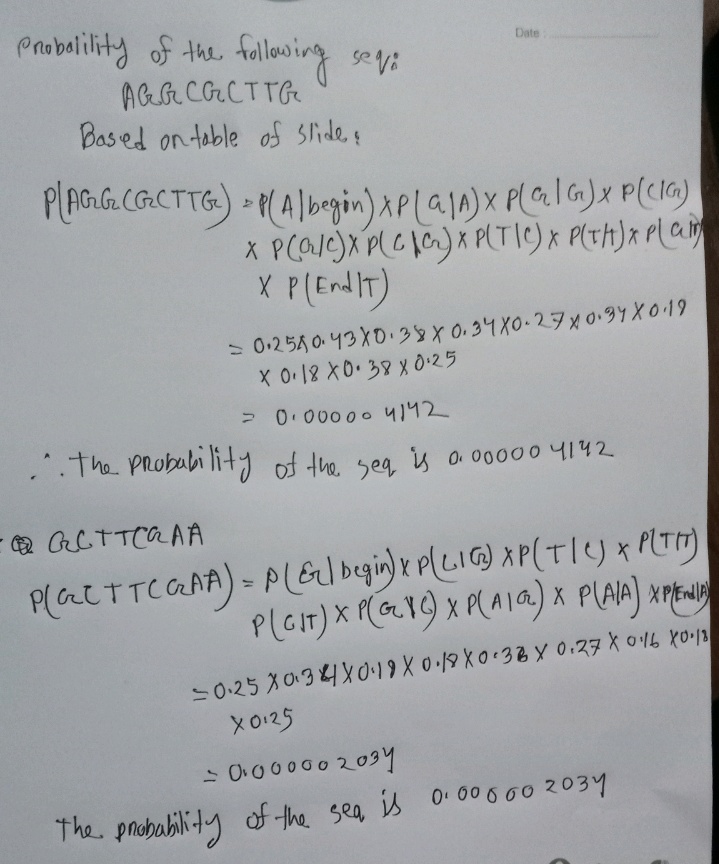 Date :
Probalility of the following seq:
AGGCGCTTG
Based on table of slide:
P(AGGCGCTTG) = P(A|begin) x P(G|A) x P(G|G) x P(C|G)
x P(G|C) x P(C|G) x P(T|C) x P(T|T) x P(G|T)
x P(End|T)
= 0.25 x 0.43 x 0.38 x 0.34 x 0.27 x 0.34 x 0.19
x 0.18 x 0.38 x 0.25
= 0.000004142
∴ The probability of the seq is 0.000004142
GCTTCGAA
P(GCTTCGAA) = P(G|begin) x P(C|G) x P(T|C) x P(T|T)
P(C|T) x P(G|C) x P(A|G) x P(A|A) x P(End|A)
= 0.25 x 0.34 x 0.19 x 0.18 x 0.33 x 0.27 x 0.16 x 0.18
x 0.25
= 0.000002034
The probability of the seq is 0.000002034